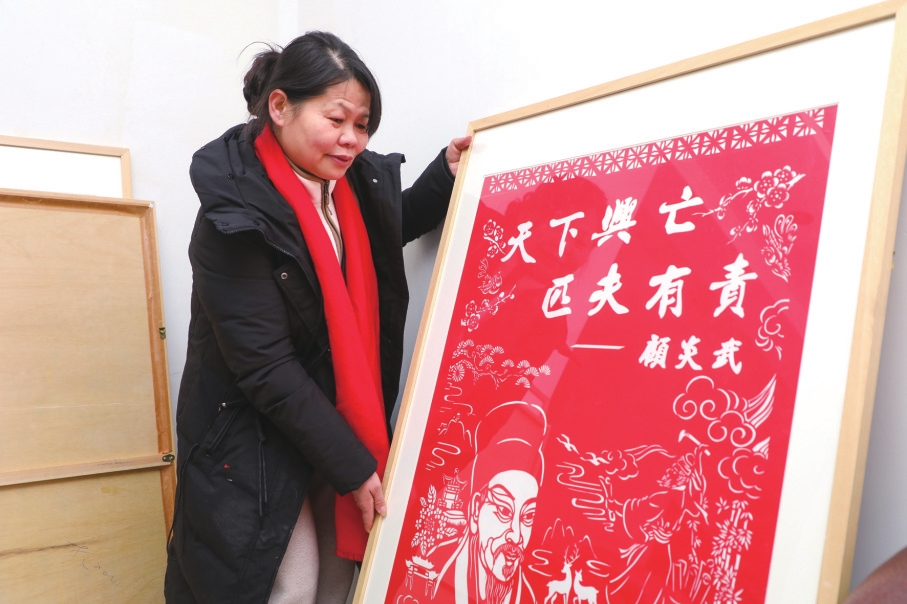 天下興亡
匹夫有責
——顧炎武